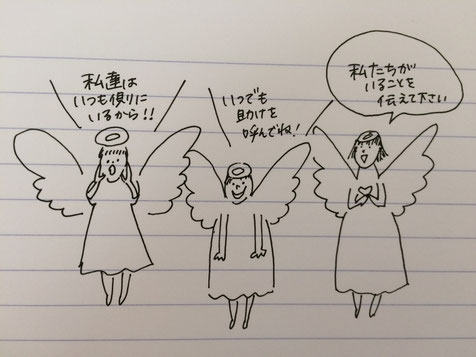 私達は
いつも
いるから!!
いつでも
助けを
呼んでね!
私たちが
いることを
伝えて下さい